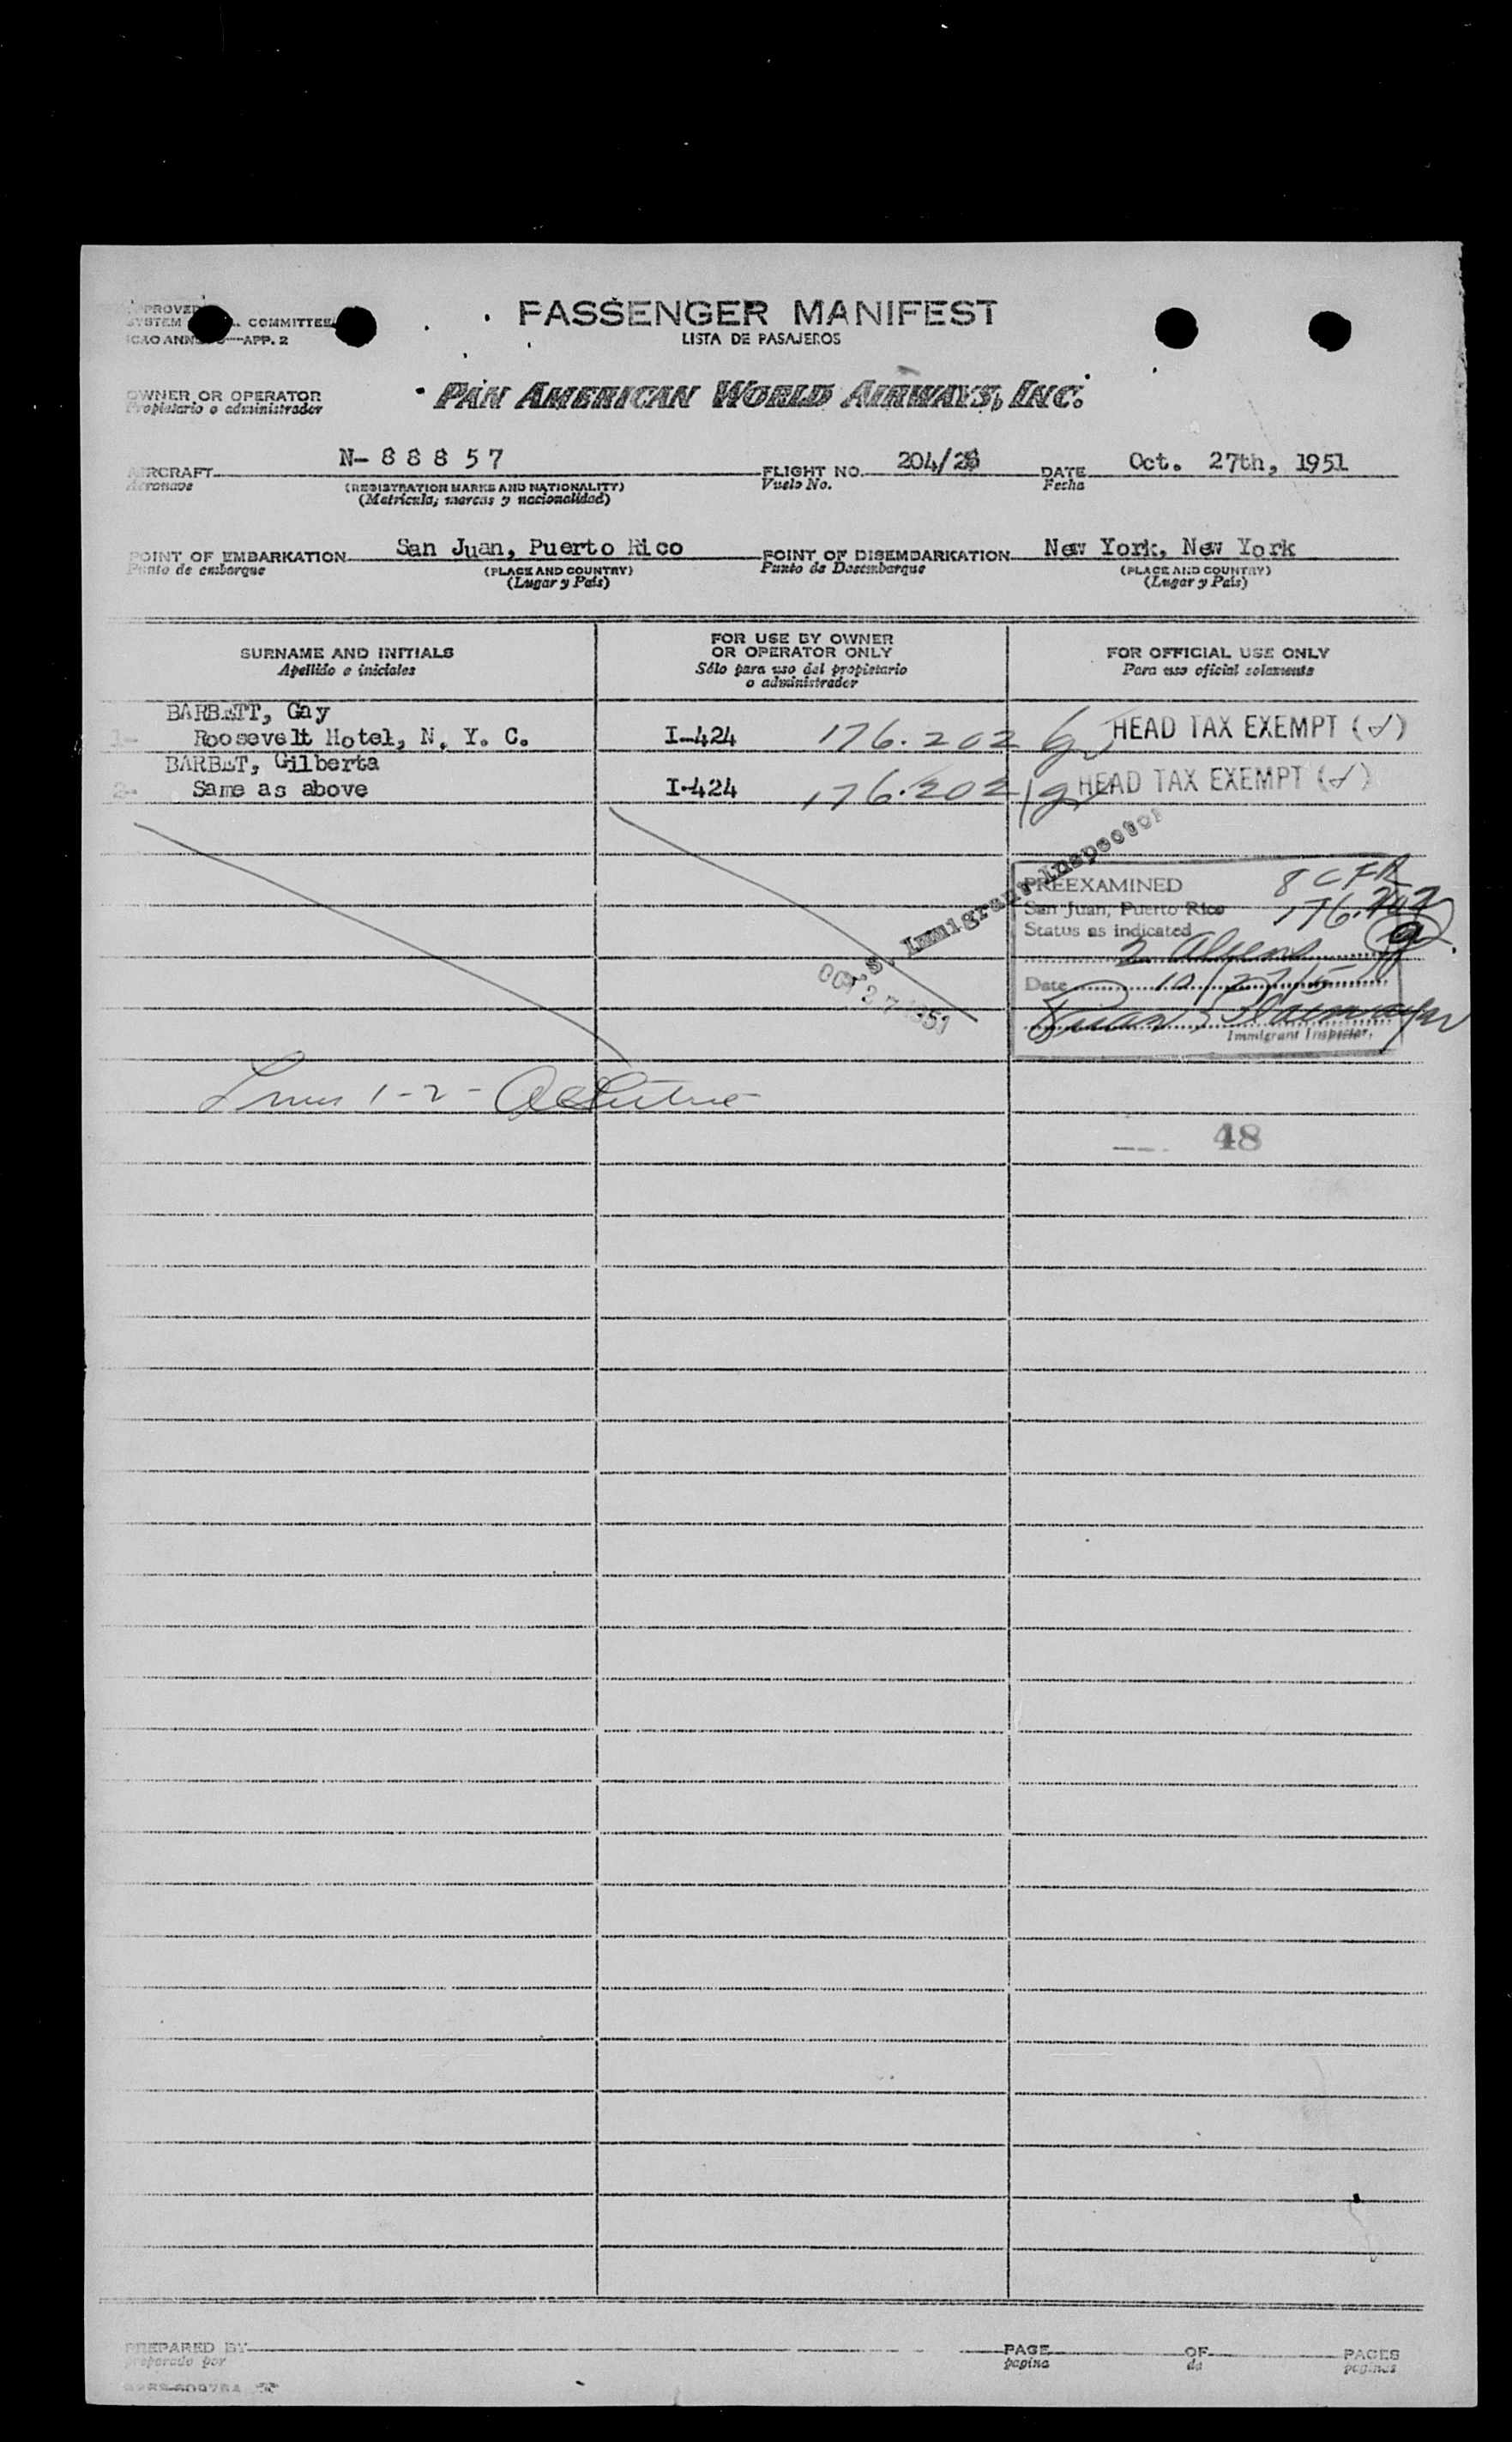 PASSENGER MANIFEST
LISTA DE PASAJEROS
COMMITTEE
APP. 2
OWNER OR OPERATOR
Propietario o administrador
PAN AMERICAN WORLD AIRWAYS, INC.
AIRCRAFT N-88857 FLIGHT NO. 204/28 DATE Oct. 27th, 1951
Aeronave (REGISTRATION MARKS AND NATIONALITY) Vuelo No. Fecha
(Matricula, marcas y nacionalidad)
POINT OF EMBARKATION San Juan, Puerto Rico POINT OF DISEMBARKATION New York, New York
Punto de embarque (PLACE AND COUNTRY) Punto de Desembarque (PLACE AND COUNTRY)
(Lugar y País) (Lugar y País)
SURNAME AND INITIALS
Apellido e iniciales
FOR USE BY OWNER
OR OPERATOR ONLY
Sólo para uso del propietario
o administrador
FOR OFFICIAL USE ONLY
Para uso oficial solamente
BARBETT, Gay
1- Roosevelt Hotel, N. Y. C. I-424 176.202 HEAD TAX EXEMPT
BARBET, Gilberta
2- Same as above I-424 176.202 HEAD TAX EXEMPT
S. Immigrant Inspector
OCT 27 1951
PREEXAMINED 8 CFR
San Juan, Puerto Rico 176.202
Status as indicated
2 Aliens
Date 10/27/51
Immigrant Inspector.
Lines 1-2-
48
PREPARED BY PAGE OF PAGES
preparado por pagina de paginas